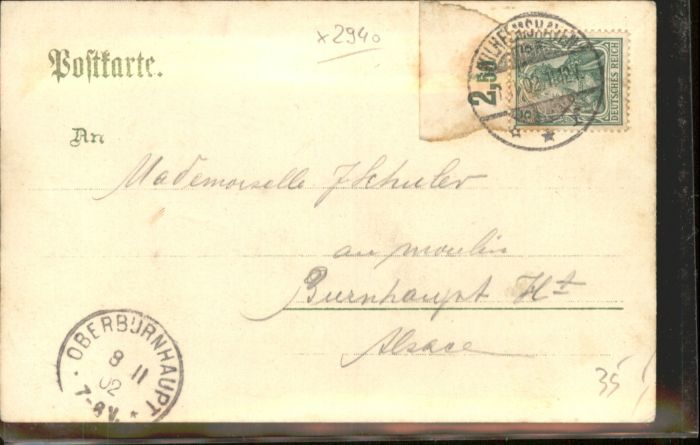 x2940
Postkarte.
WILHELMSHAVEN
2,50
DEUTSCHES REICH
An
Mademoiselle J Schuler
au moulin
Burnhaupt Ht
Alsace
OBERBURNHAUPT
8 11
02
7-8V.
35